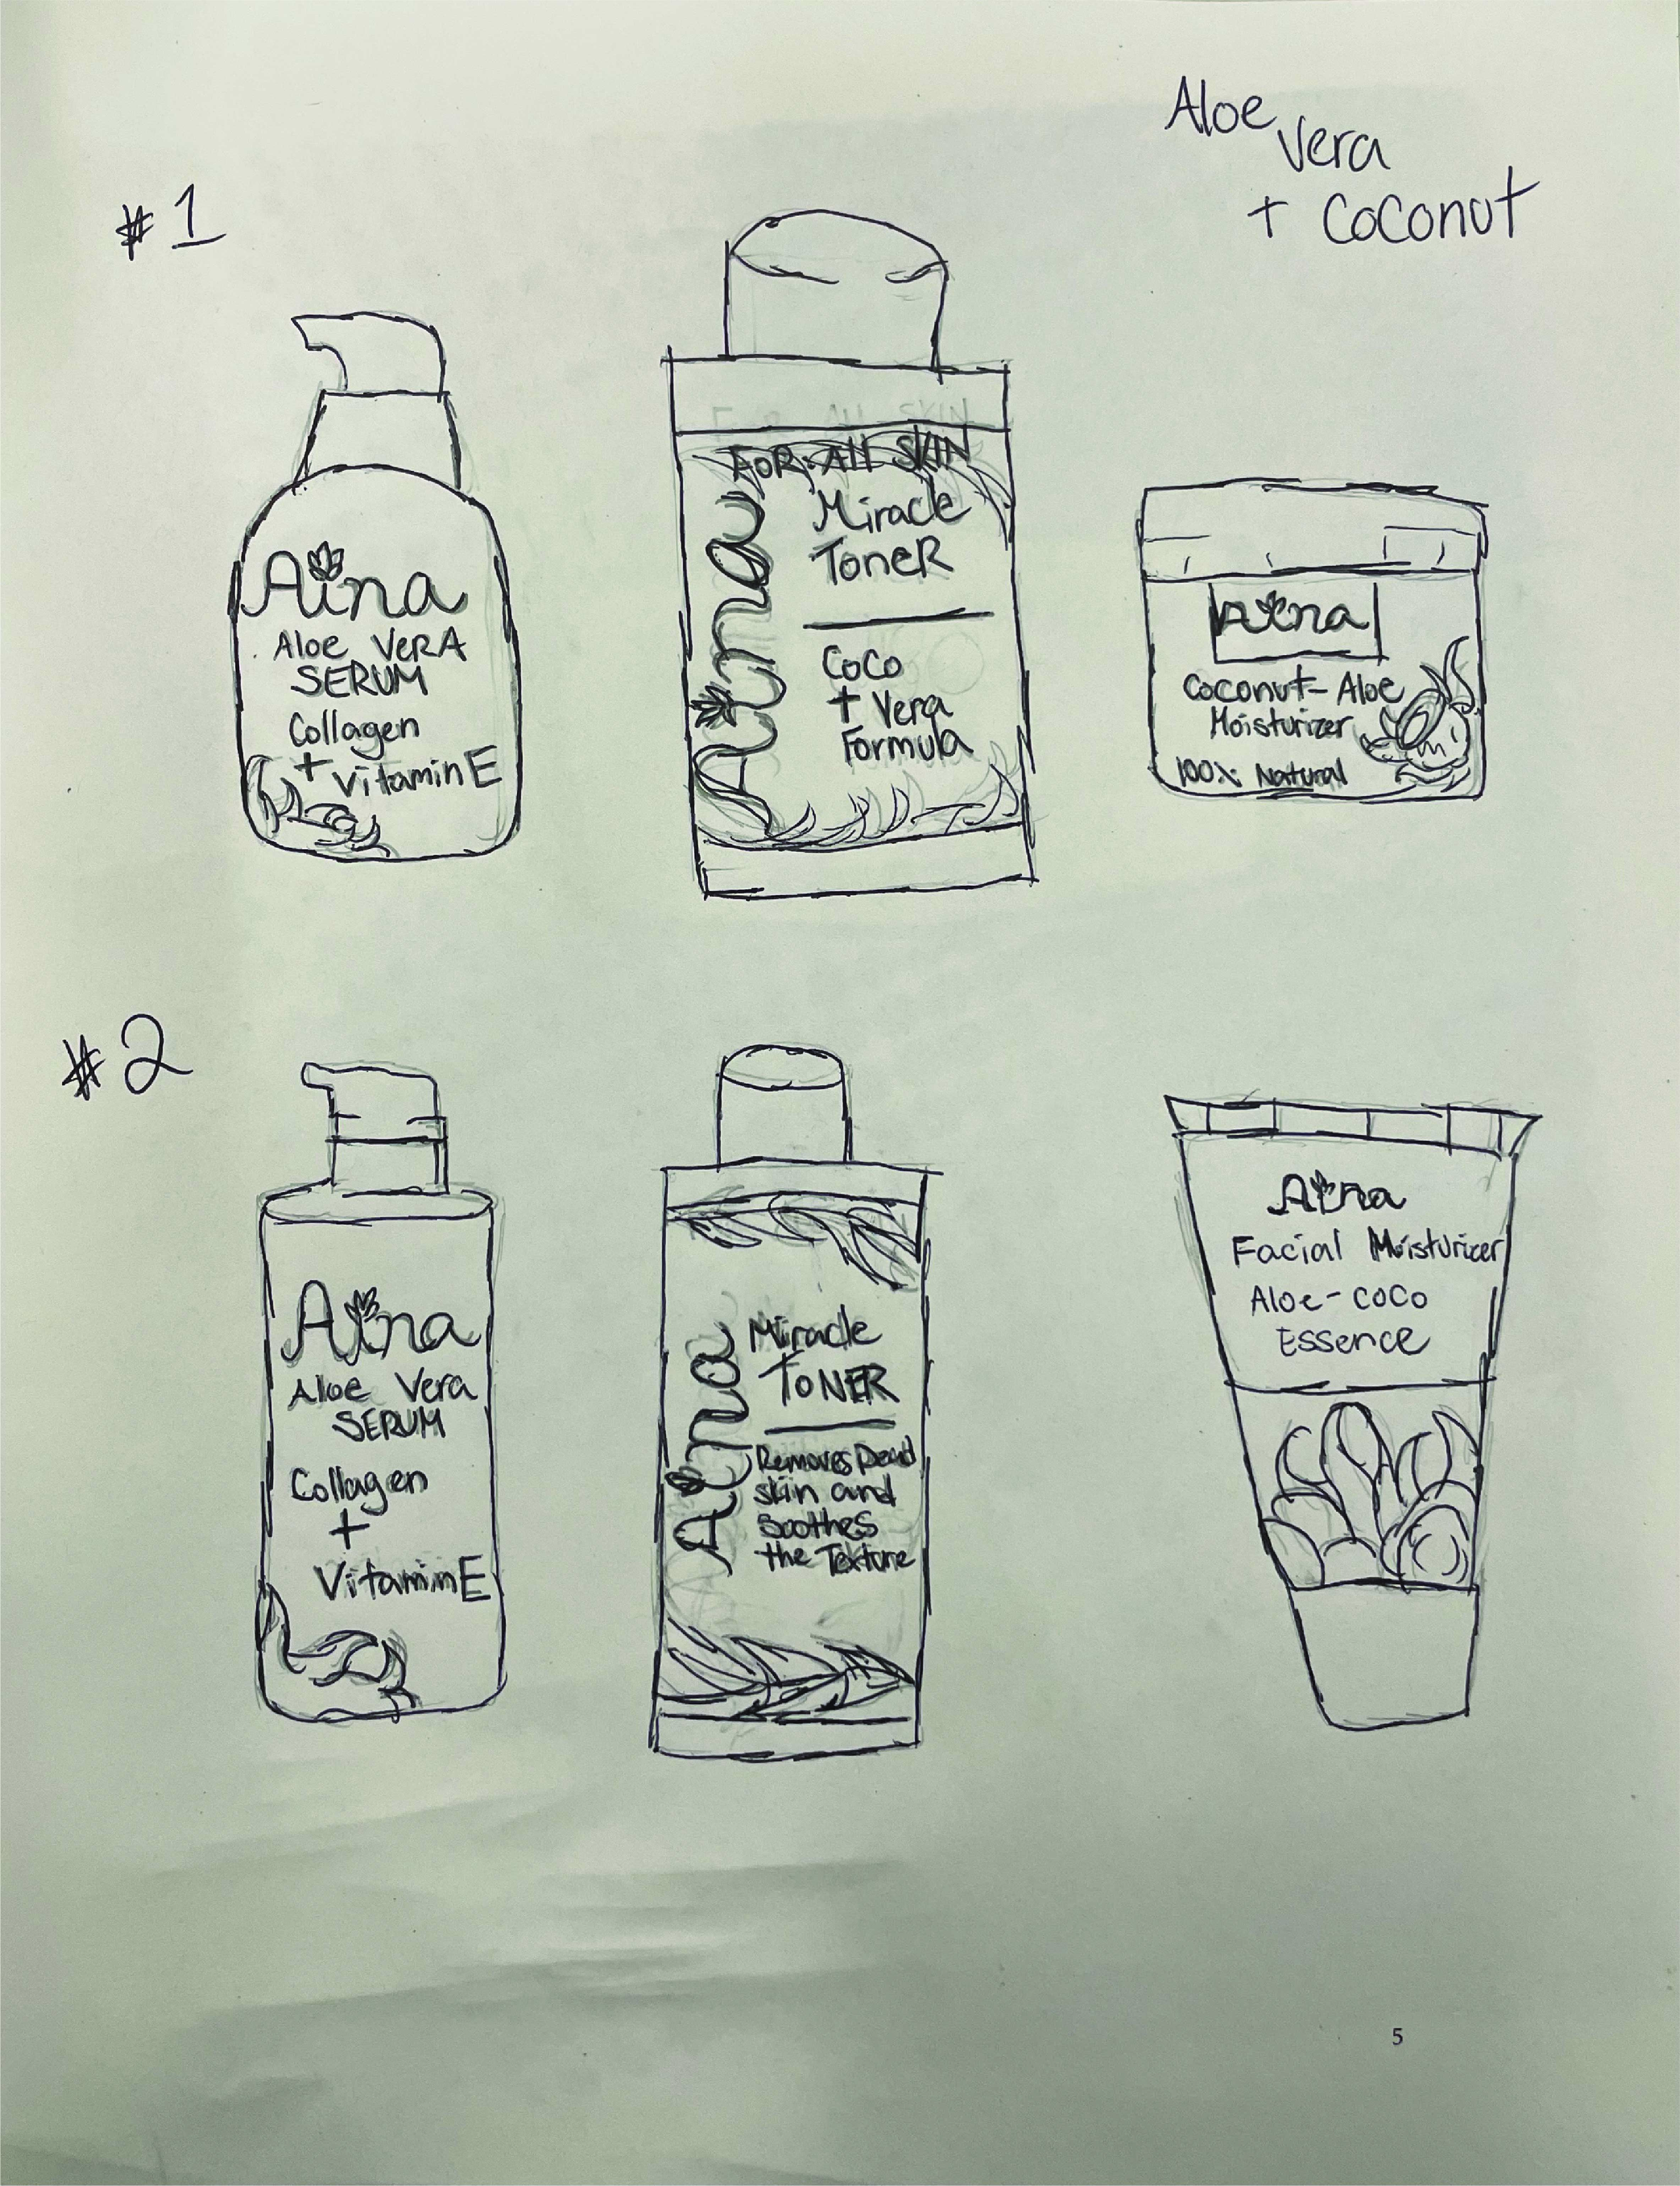 Aloe
Vera
+ Coconut
#1
Aina
Aloe VerA
SERUM
Collagen
+ Vitamin E
FOR All SKIN
FOR All SKIN
Aina
Miracle
ToneR
CoCo
+ Vera
Formula
Aina
Coconut-Aloe
Moisturizer
100% Natural
#2
Aina
Aloe Vera
SERUM
Collagen
+
Vitamin E
Aina
Miracle
ToNER
Removes Dead
skin and
Soothes
the Texture
Aina
Facial Moisturizer
Aloe-CoCo
Essence
5